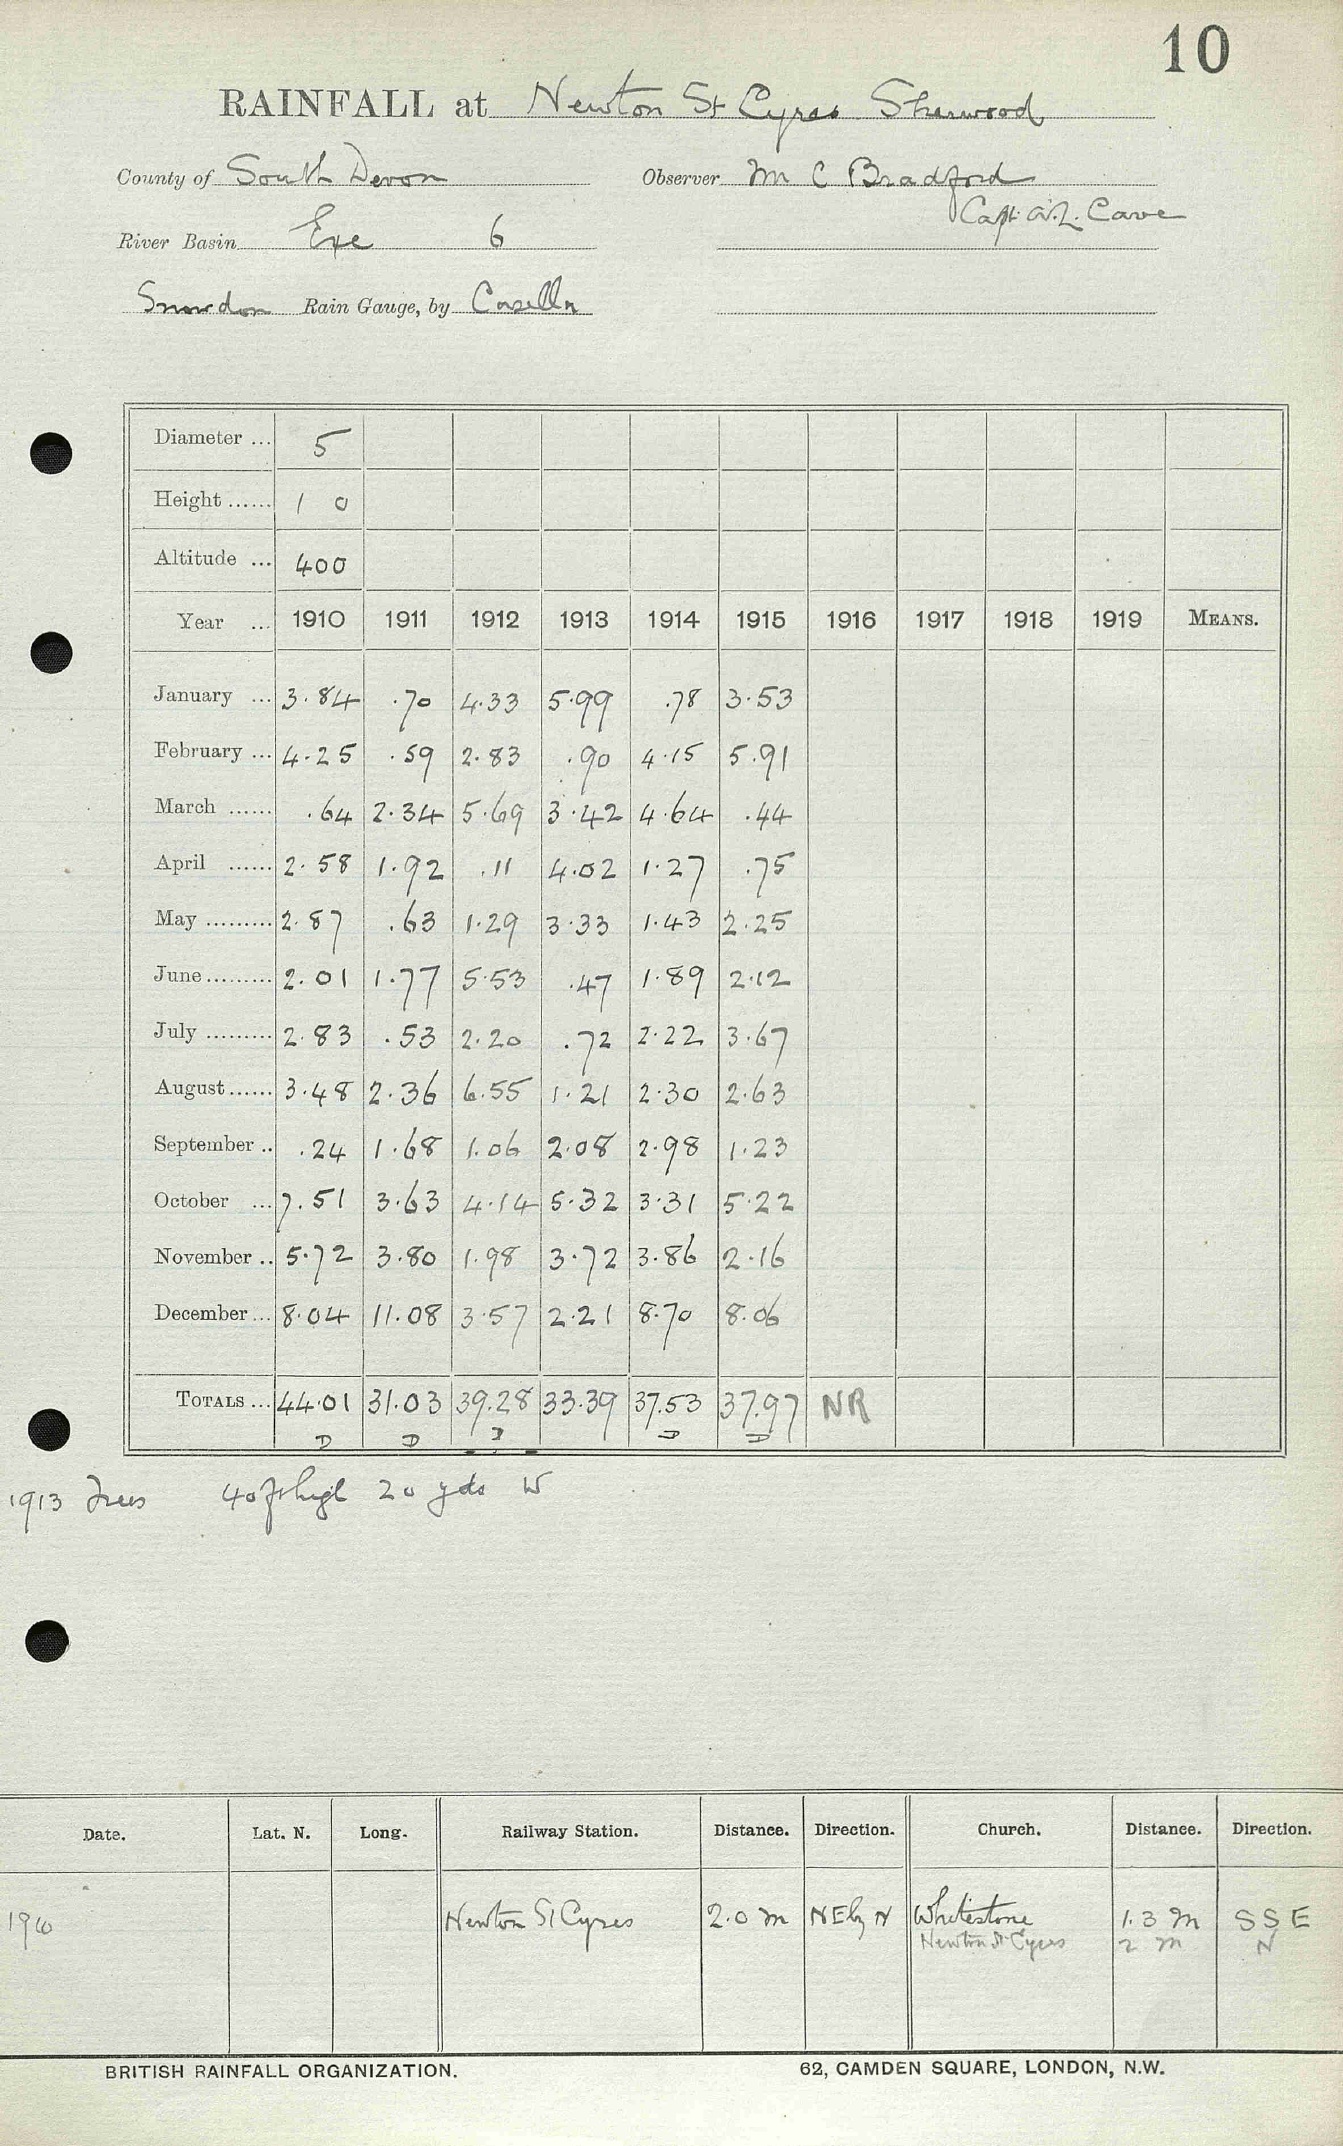 10
RAINFALL at Newton St Cyres Sherwood
County of South Devon Observer M C Bradford
Capt. A.L. Cave
River Basin Exe 6
Snowdon Rain Gauge, by Casella
Diameter ... 5
Height ...... 1 0
Altitude ... 400
Year ... 1910 1911 1912 1913 1914 1915 1916 1917 1918 1919 MEANS.
January ... 3.84 .70 4.33 5.99 .78 3.53
February ... 4.25 .59 2.83 .90 4.15 5.91
March ...... .64 2.34 5.69 3.42 4.64 .44
April ...... 2.58 1.92 .11 4.02 1.27 .75
May ......... 2.87 .63 1.29 3.33 1.43 2.25
June ......... 2.01 1.77 5.53 .47 1.89 2.12
July ......... 2.83 .53 2.20 .72 2.22 3.67
August ...... 3.48 2.36 6.55 1.21 2.30 2.63
September .. .24 1.68 1.06 2.08 2.98 1.23
October ... 7.51 3.63 4.14 5.32 3.31 5.22
November .. 5.72 3.80 1.98 3.72 3.86 2.16
December ... 8.04 11.08 3.57 2.21 8.70 8.06
TOTALS ... 44.01 31.03 39.28 33.39 37.53 37.97 NR
D D D D D
1913 Trees 40ft high 20 yds W
Date. Lat. N. Long. Railway Station. Distance. Direction. Church. Distance. Direction.
1910 Newton St Cyres 2.0 m NE by N Whitestone 1.3 m SSE
Newton St Cyres 2 m N
BRITISH RAINFALL ORGANIZATION. 62, CAMDEN SQUARE, LONDON, N.W.